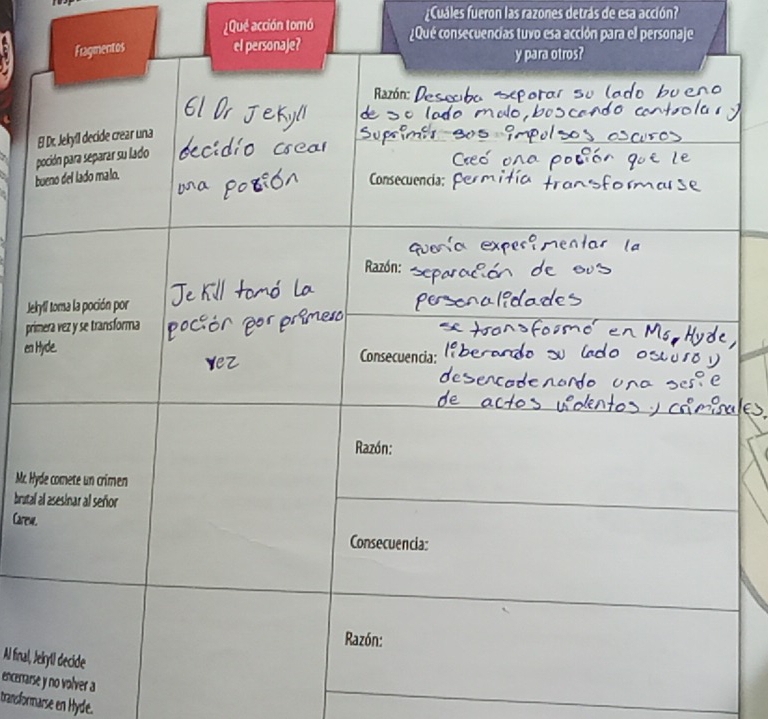 Fragmentos
¿Qué acción tomó
el personaje?
¿Cuáles fueron las razones detrás de esa acción?
¿Qué consecuencias tuvo esa acción para el personaje
y para otros?
El Dr. Jekyll decide crear una
poción para separar su lado
bueno del lado malo.
El Dr Jekyll
decidio crear
una poción
Razón: Deseaba separar su lado bueno
de so lado malo, buscando controlar y
Suprimir sus impulsos oscuros
Creó una poción que le
Consecuencia: permitía transformarse
Jekyll toma la poción por
primera vez y se transforma
en Hyde.
Jekill tomó la
poción por primera
vez
quería experimentar la
Razón: separación de sus
personalidades
se transformó en Mr, Hyde,
Consecuencia: liberando su lado oscuro y
desencadenando una serie
de actos violentos y criminales.
Mr. Hyde comete un crimen
brutal al asesinar al señor
Carew.
Razón:
Consecuencia:
Al final, Jekyll decide
encerrarse y no volver a
transformarse en Hyde.
Razón: